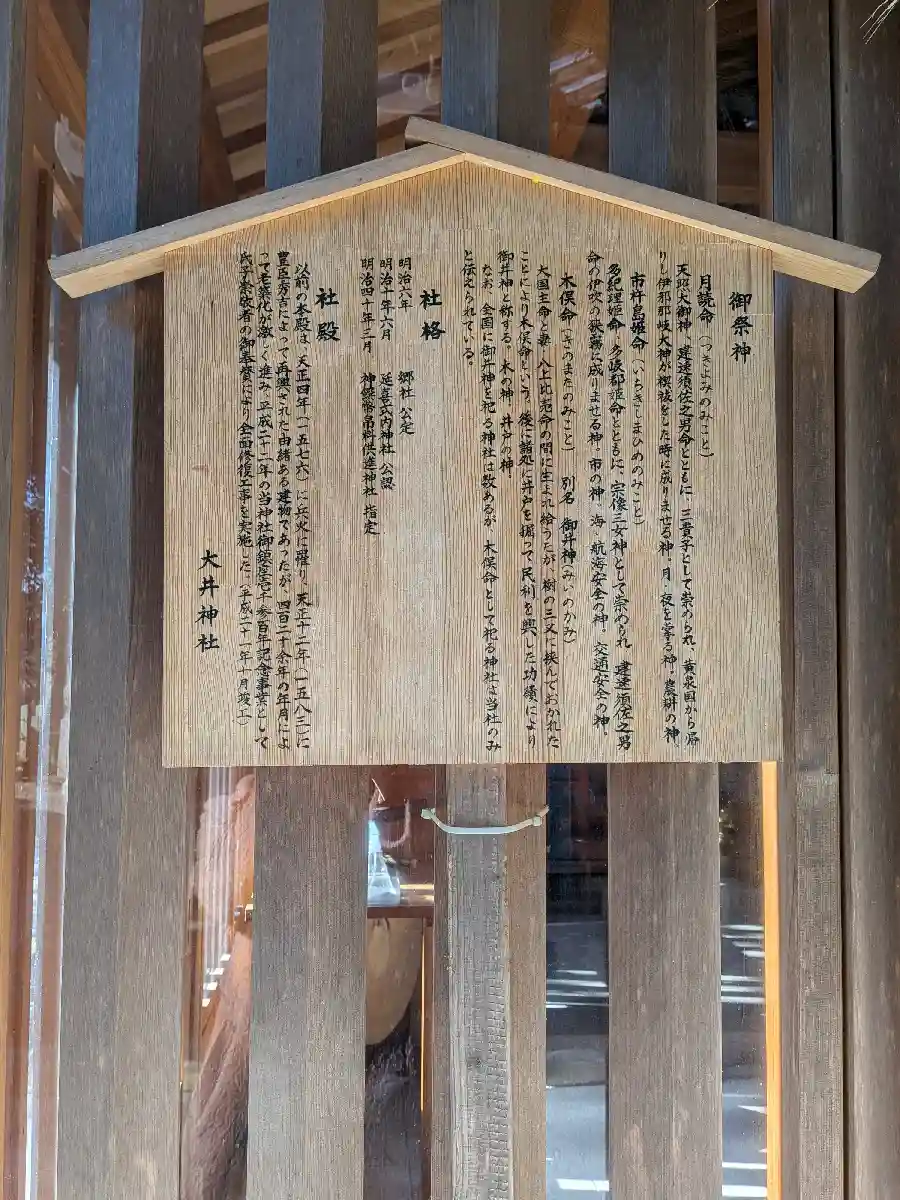 御祭神
月読命（つきよみのみこと）
天照大御神、建速須佐之男命とともに、三貴子として崇められ、黄泉国から帰
りし伊邪那岐大神が禊祓をした時に成りませる神。月・夜を掌る神。農耕の神。
市杵島姫命（いちきしまひめのみこと）
多紀理姫命・多岐都姫命とともに、宗像三女神として崇められ、建速須佐之男
命の伊吹の狭霧に成りませる神。市の神。海・航海安全の神。交通安全の神。
木俣命（きのまたのみこと）　別名　御井神（みいのかみ）
大国主命と妻・八上比売命の間に生まれ給うたが、樹の三又に挟んでおかれた
ことにより木俣命という。後に諸処に井戸を掘って民利を興した功績により
御井神と称する。木の神。井戸の神。
なお、全国に御井神を祀る神社は数あるが、木俣命として祀る神社は当社のみ
と伝えられている。
社格
明治六年　郷社　公定
明治十年六月　延喜式内神社　公認
明治四十年三月　神饌幣帛料供進神社　指定
社殿
以前の本殿は、天正四年（一五七六）に兵火に罹り、天正十二年（一五八三）に
豊臣秀吉によって再興された由緒ある建物であったが、四百二十余年の年月によ
って老築化が激しく進み、平成二十二年の当神社御鎮座壱千参百年記念事業として
氏子崇敬者の御奉賛により全面修復工事を実施した。（平成二十一年十月竣工）
大井神社